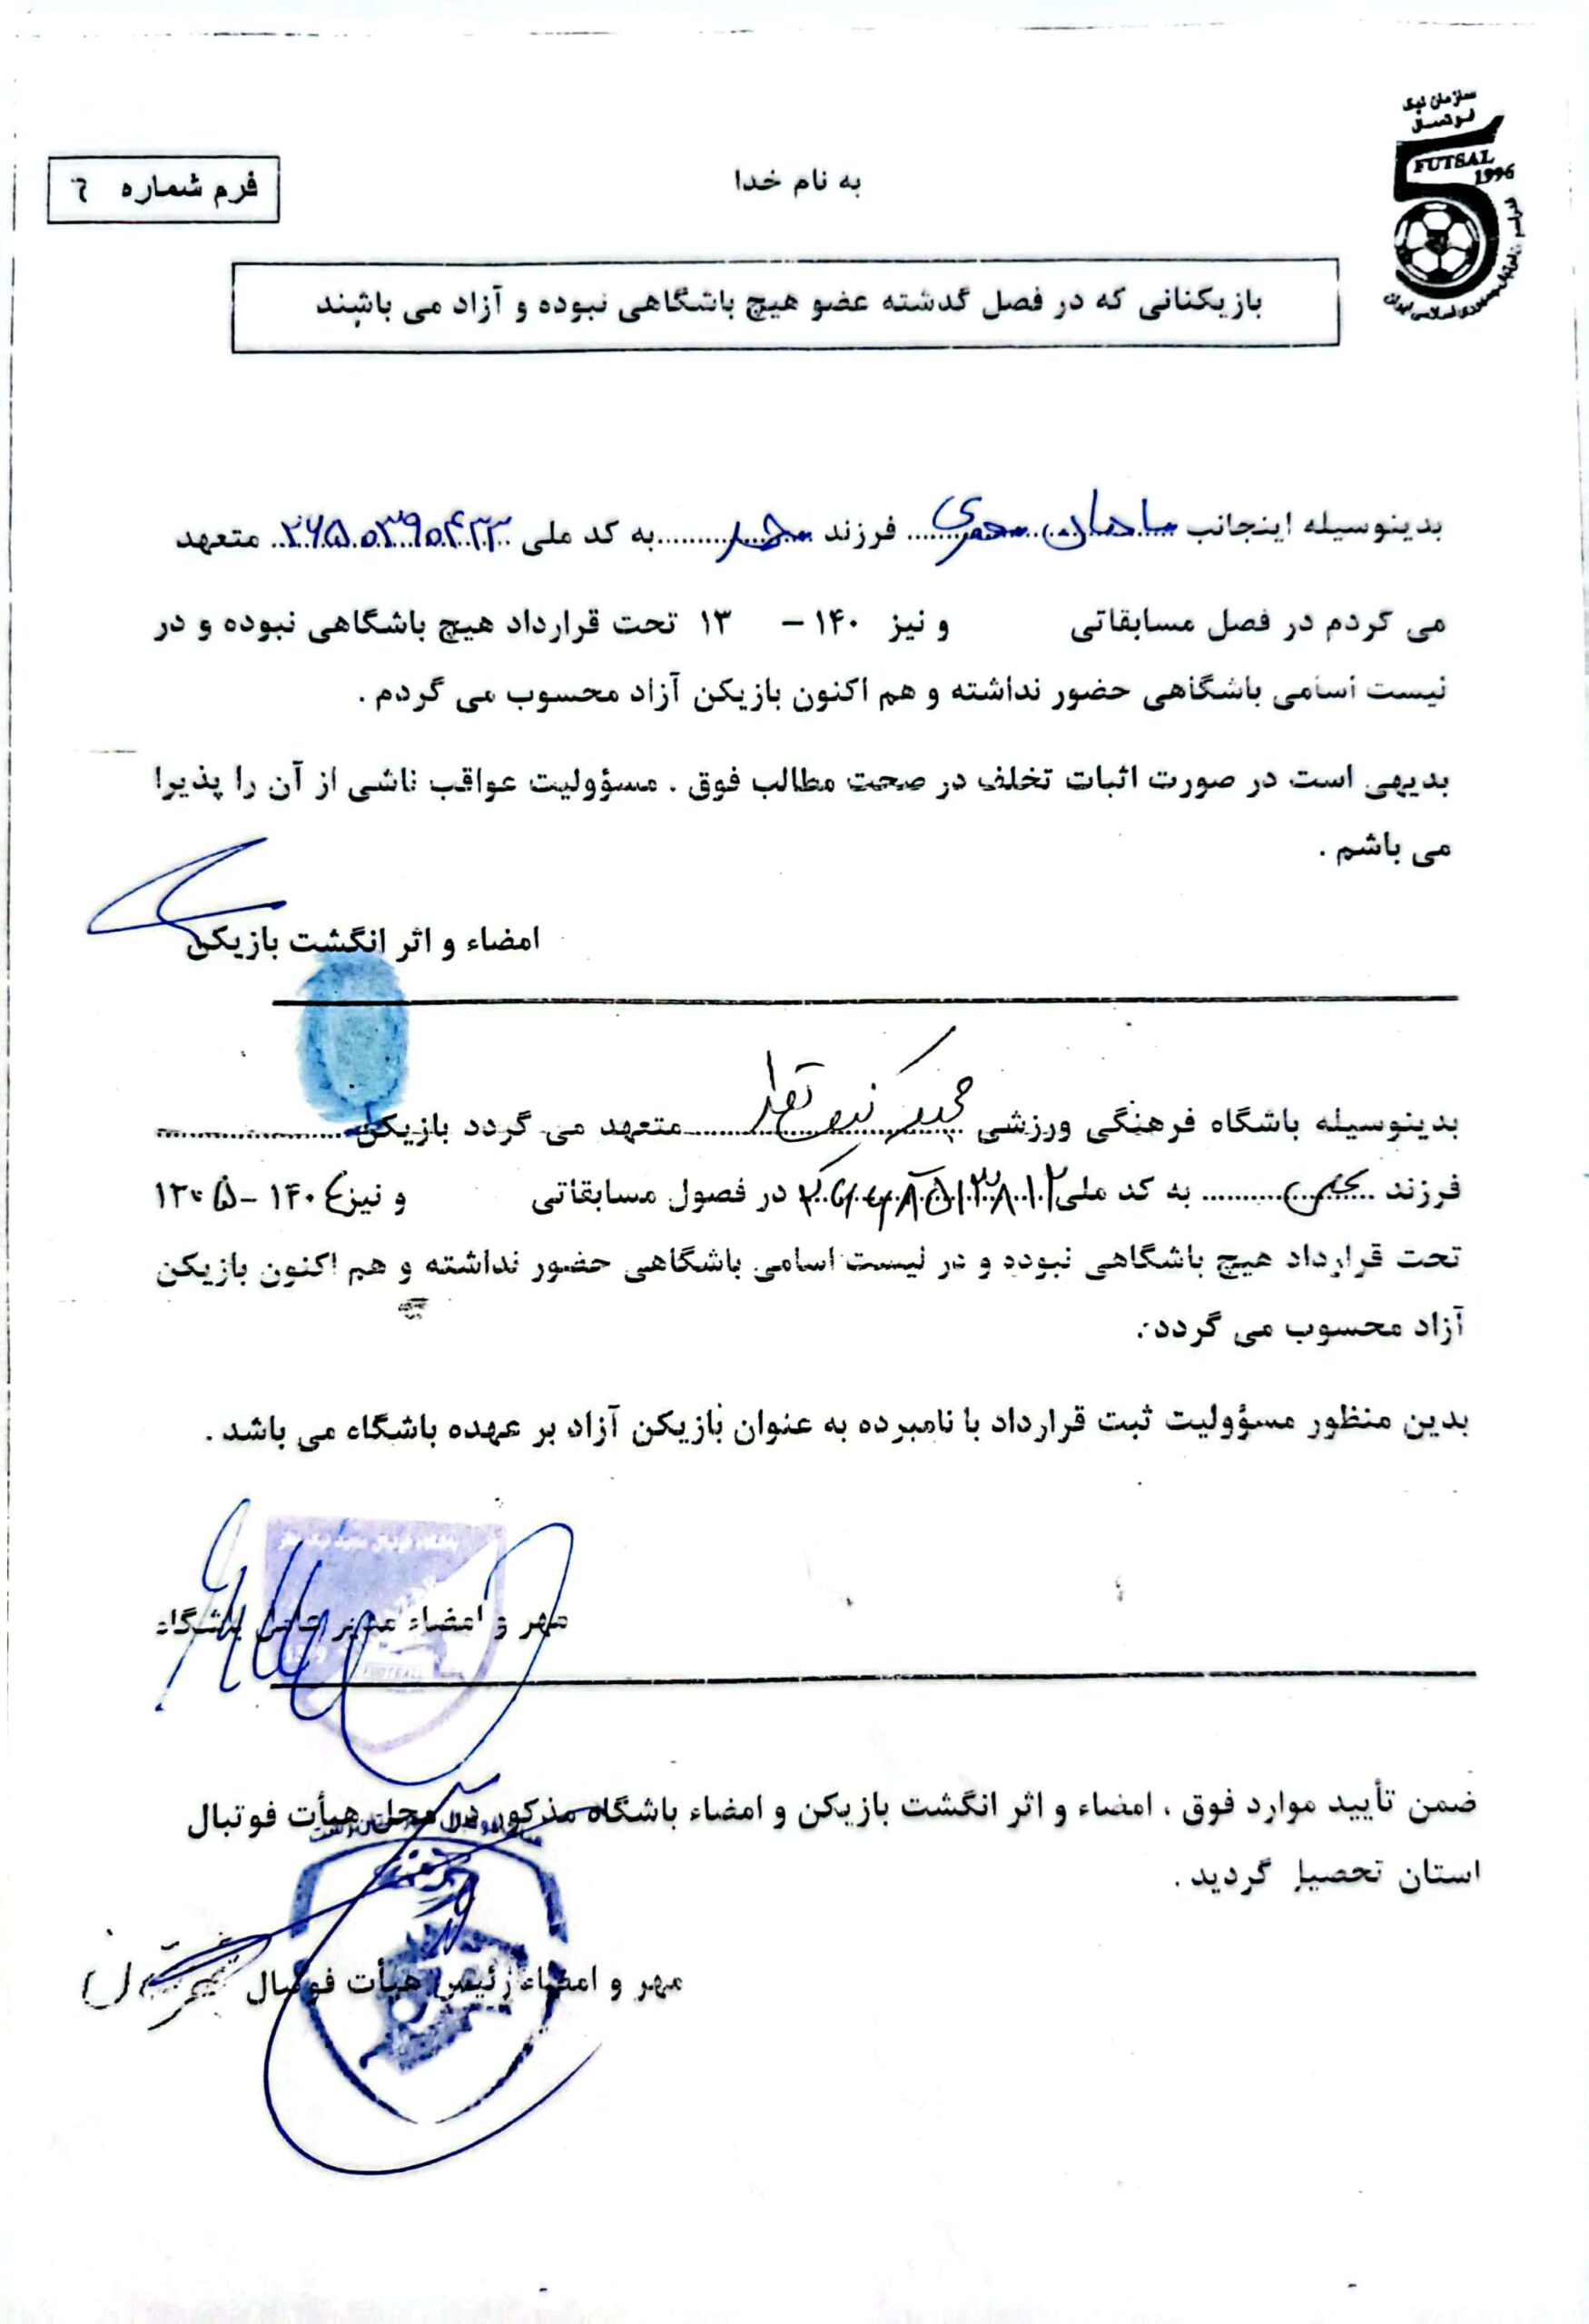 سازمان لیگ
فوتسال
FUTSAL
1996
به نام خدا
فرم شماره ٦
بازیکنانی که در فصل گذشته عضو هیچ باشگاهی نبوده و آزاد می باشند
بدینوسیله اینجانب ............ فرزند ............ به کد ملی ۲۶۵۰۳۹۰۴۳۳ متعهد
می گردم در فصل مسابقاتی و نیز ۱۴۰ – ۱۳ تحت قرارداد هیچ باشگاهی نبوده و در
لیست اسامی باشگاهی حضور نداشته و هم اکنون بازیکن آزاد محسوب می گردم .
بدیهی است در صورت اثبات تخلف در صحت مطالب فوق ، مسؤولیت عواقب ناشی از آن را پذیرا
می باشم .
امضاء و اثر انگشت بازیکن
بدینوسیله باشگاه فرهنگی ورزشی ............ متعهد می گردد بازیکن ............
فرزند ............ به کد ملی در فصول مسابقاتی و نیز ۱۴۰۴ - ۱۴۰۵
تحت قرارداد هیچ باشگاهی نبوده و در لیست اسامی باشگاهی حضور نداشته و هم اکنون بازیکن
آزاد محسوب می گردد .
بدین منظور مسؤولیت ثبت قرارداد با نامبرده به عنوان بازیکن آزاد بر عهده باشگاه می باشد .
مهر و امضاء مدیر عامل باشگاه
FOOTBALL
ضمن تأیید موارد فوق ، امضاء و اثر انگشت بازیکن و امضاء باشگاه مذکور در محل هیأت فوتبال
استان تحصیل گردید .
مهر و امضاء رئیس هیأت فوتبال